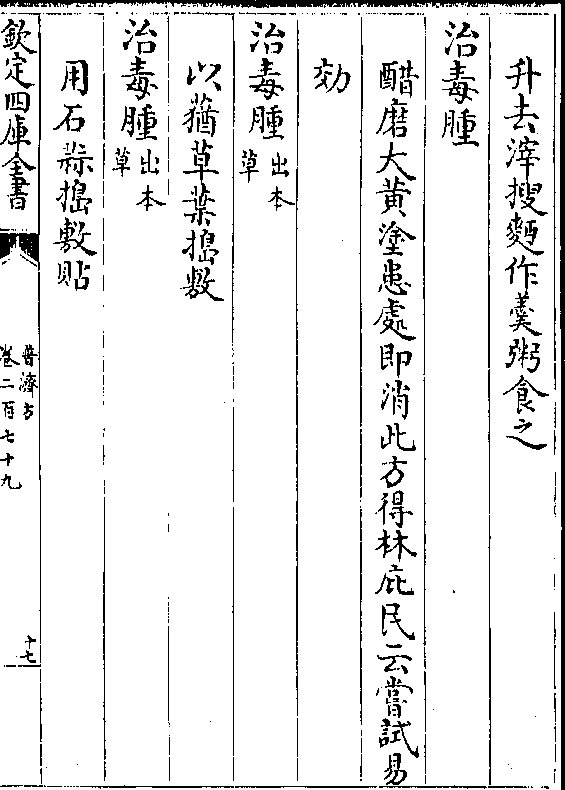 升去滓搜麪作羹粥食之
治毒腫
醋磨大黄塗患處即消此方得林庇民云嘗試易
効
治毒腫出本草
以蕕草葉搗敷
治毒腫出本草
用石蒜搗敷貼
欽定四庫全書
普濟方
卷二百七十九
十七